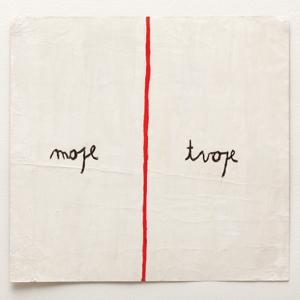 moje tvoje